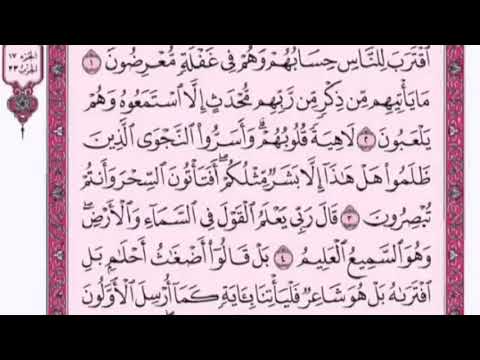 الجزء ١٧
الحزب ٣٣
ٱقْتَرَبَ لِلنَّاسِ حِسَابُهُمْ وَهُمْ فِى غَفْلَةٍ مُّعْرِضُونَ ١
مَا يَأْتِيهِم مِّن ذِكْرٍ مِّن رَّبِّهِم مُّحْدَثٍ إِلَّا ٱسْتَمَعُوهُ وَهُمْ
يَلْعَبُونَ ٢ لَاهِيَةً قُلُوبُهُمْ ۗ وَأَسَرُّوا۟ ٱلنَّجْوَى ٱلَّذِينَ
ظَلَمُوا۟ هَلْ هَٰذَآ إِلَّا بَشَرٌ مِّثْلُكُمْ ۖ أَفَتَأْتُونَ ٱلسِّحْرَ وَأَنتُمْ
تُبْصِرُونَ ٣ قَالَ رَبِّى يَعْلَمُ ٱلْقَوْلَ فِى ٱلسَّمَآءِ وَٱلْأَرْضِ ۖ
وَهُوَ ٱلسَّمِيعُ ٱلْعَلِيمُ ٤ بَلْ قَالُوٓا۟ أَضْغَٰثُ أَحْلَٰمٍۭ بَلِ
ٱفْتَرَىٰهُ بَلْ هُوَ شَاعِرٌ فَلْيَأْتِنَا بِـَٔايَةٍ كَمَآ أُرْسِلَ ٱلْأَوَّلُونَ